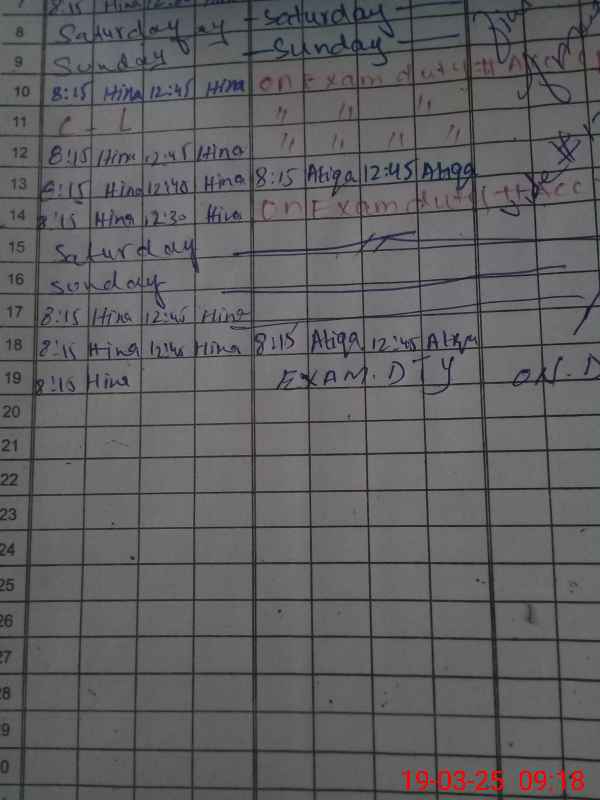 7 8:15 Hina 12:
8 Saturday - Saturday -
9 Sunday - Sunday -
10 8:15 Hina 12:45 Hina On Exam duty
11 C - L " " "
12 8:15 Hina 12:45 Hina " " " "
13 8:15 Hina 12:40 Hina 8:15 Atiqa 12:45 Atiqa
14 8:15 Hina 12:30 Hina On Exam duty
15 Saturday
16 Sunday
17 8:15 Hina 12:45 Hina
18 8:15 Hina 12:40 Hina 8:15 Atiqa 12:45 Atiqa
19 8:15 Hina EXAM.DTY ON.D
20
21
22
23
24
25
26
27
28
9
0
19-03-25 09:18